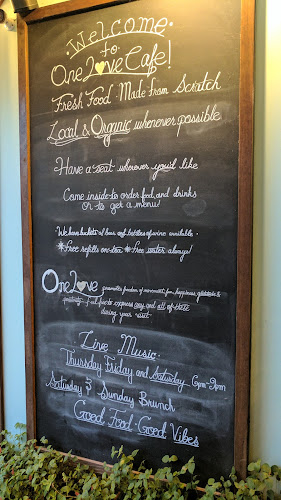 ·Welcome·
·to·
One Love Cafe!
Fresh Food · Made From Scratch
Local & Organic whenever possible
Have a seat wherever you'd like
Come inside to order food and drinks
or to get a menu!
We have buckets of beer and bottles of wine available
*Free refills on tea *Free water always!
One Love promotes freedom of movement, fun, happiness, gratitude &
positivity. Feel free to express any and all of these
during your visit
Live Music·
Thursday Friday and Saturday 6pm-9pm
Saturday & Sunday Brunch
Good Food · Good Vibes